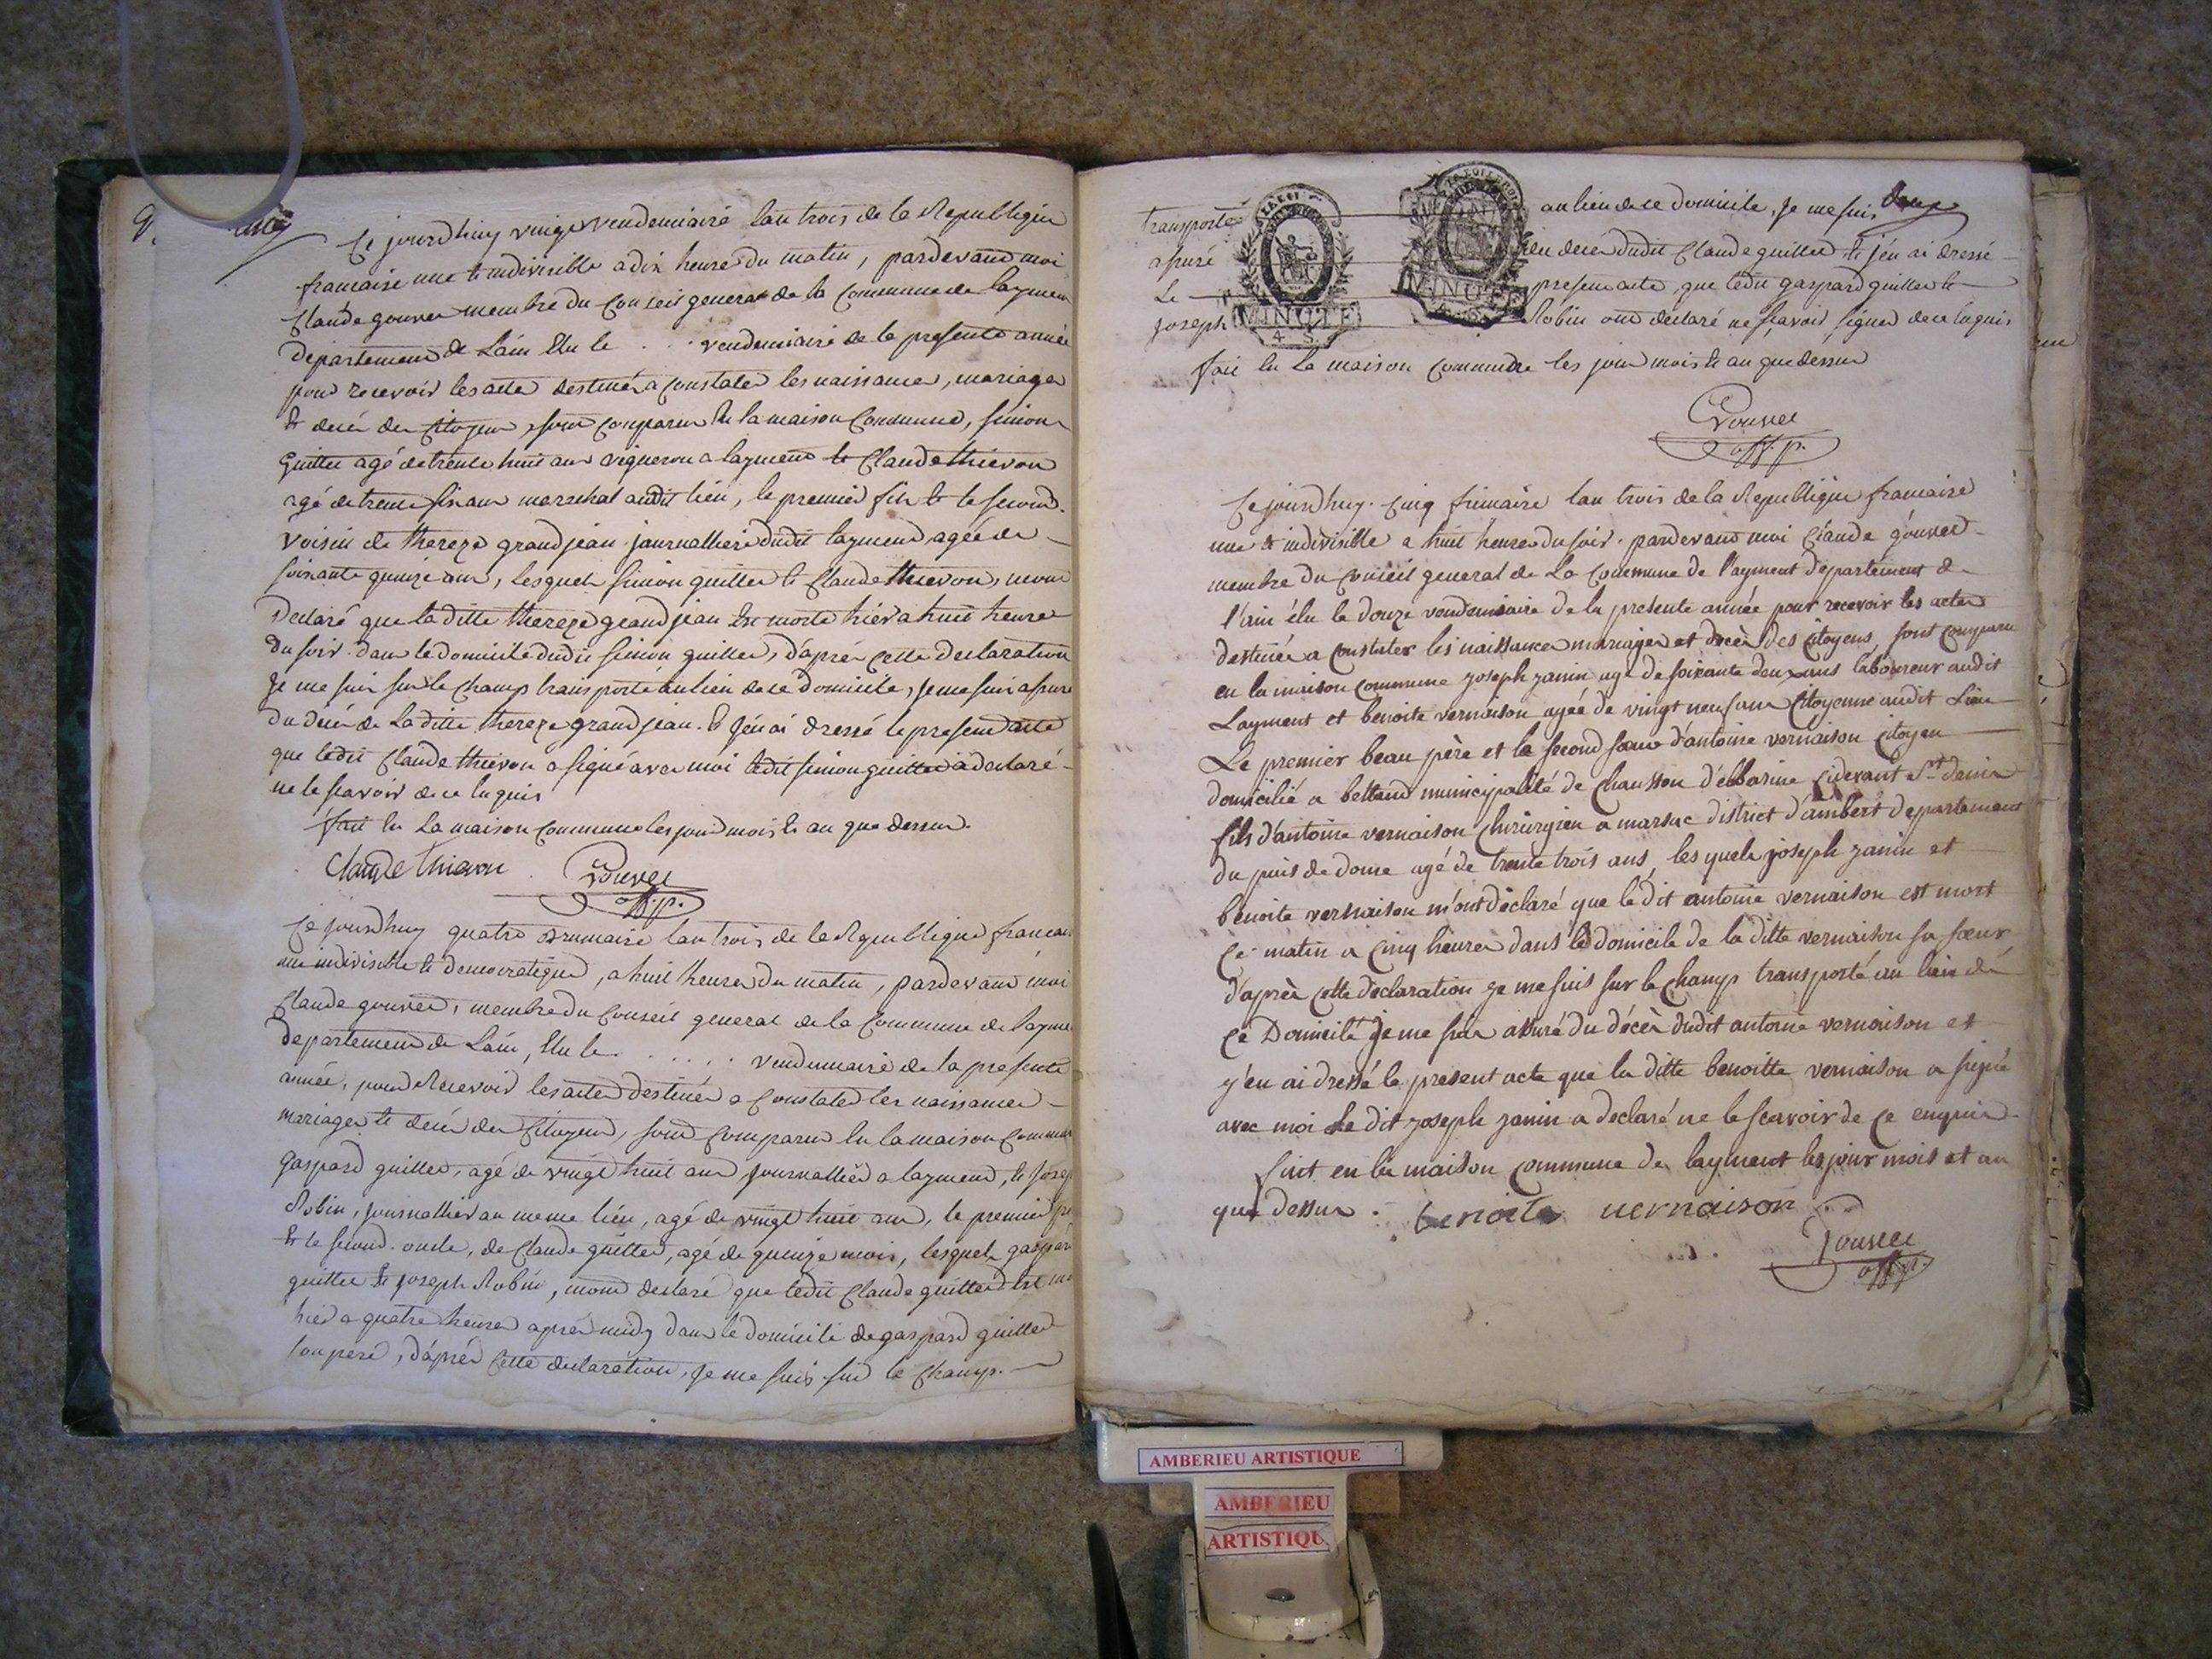 Ce jourdhuy vingt vendemiaire lan trois de la Republique
francaise une et indivisible a dix heures du matin, pardevand moi
Claude gouvet membre du Conseil general de la Commune de laymen
departement de Lain Elu le . . . vendemiaire de la presente année
pour recevoir les actes destinés a constater les naissances, mariages
et decés des citoyens, sont comparus En la maison Commune, simon
guittet agé de trente huit ans vigneron a layment et Claude thievon
agé de trente six ans marechal audit lieu, le premier fils et le second
voisin de thereze grandjean journalliere dudit layment agée de
soixante quinze ans, lesquels simon guittet et Claude thievon, mont
declaré que la ditte thereze grandjean Est morte hier a huit heures
du soir dans le domicile dudit simon guittet, d'aprés cette declaration
je me suis sur le champ transporté au lieu de ce domicile, je me suis assuré
du decés de la ditte thereze grandjean. Et j'en ai dressé le present acte
que ledit Claude thievon a signé avec moi ledit simon guittet a declaré
ne le scavoir de ce Enquis
fait En La maison commune les jour mois et an que dessus.
Claude thievon Gouvet
off. p.
Ce jourdhuy quatre Brumaire lan trois de la Republique francais
une indivisible et democratique, a huit heures du matin, pardevand moi
Claude gouvet, membre du Conseil general de la Commune de layme
departement de Lain, Elu le . . . . . vendemiaire de la presente
année, pour Recevoir les actes destinés a Constater les naissances
mariages et decés des Citoyens, sont Comparus En la maison Commun
gaspard guittet, agé de vingt huit ans journallier a layment, et Josep
Robin, journallier au meme lieu, agé de vingt huit ans, le premier pe
et le second oncle, de Claude guittet, agé de quinze mois, lesquels gaspar
guittet et joseph Robin, mont declaré que ledit Claude guittet Est mo
hier a quatre heures aprés midy dans le domicile de gaspard guittet
son pere, d'aprés Cette declaration, je me suis sur le Champ.
transporté au lieu de ce domicile, Je me suis
assuré decés dudit Claude guittet et j'en ai dressé
Le present acte, que ledit gaspard guittet et
joseph Robin ont declaré ne scavoir signer de ce Enquis
MINUTE
4 S.
MINUTE
fait En La maison commune les jour mois et an que dessus
Gouvet
off. p.
Ce jourdhuy cinq frimaire lan trois de la Republique francaise
une et indivisible a huit heures du soir pardevand moi Claude gouvet
membre du Conseil general de La Commune de layment departement de
l'ain élu le douze vendemiaire de la presente année pour recevoir les actes
destinés a constater les naissances mariages et decès des citoyens, sont comparu
en la maison commune joseph janin agé de soixante deux ans laboureur audit
Layment et benoite vernaison agée de vingt neuf ans Citoyenne audit Lieu
Le premier beau père et la second sœur d'antoine vernaison citoyen
domicilié a bettand municipalité de Chausson d'albarine cidevant St denis
fils d'antoine vernaison chirurgien a marsac district d'ambert departement
du puis de dome agé de trente trois ans, les quels joseph janin et
benoite vernaison m'ont déclaré que le dit antoine vernaison est mort
Ce matin a cinq heures dans le domicile de la ditte vernaison sa sœur
d'après cette declaration je me suis sur le champ transporté au lieu de
ce Domicile je me suis assuré du décès dudit antoine vernaison et
j'en ai dressé le present acte que la ditte benoitte vernaison a signé
avec moi Le dit joseph janin a declaré ne le scavoir de ce enquis
fait en la maison commune de layment les jour mois et an
que dessus. benoite vernaison
Gouvet
off. p.
AMBERIEU ARTISTIQUE
AMBERIEU
ARTISTIQU